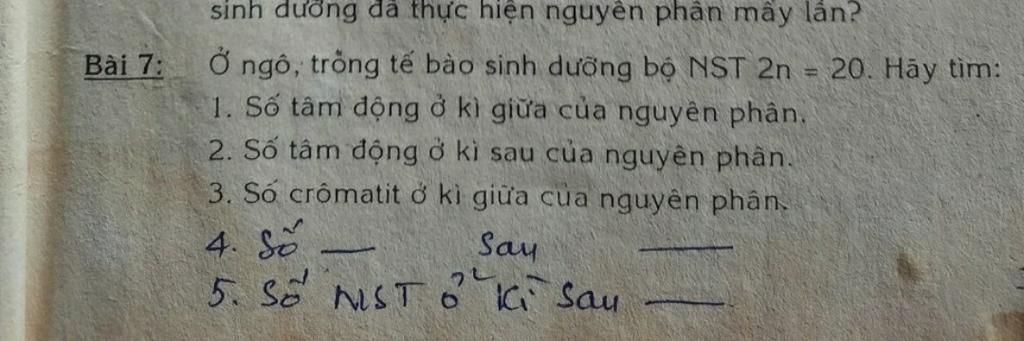 sinh dưỡng đã thực hiện nguyên phân mấy lần?
Bài 7: Ở ngô, trong tế bào sinh dưỡng bộ NST 2n = 20. Hãy tìm:
1. Số tâm động ở kì giữa của nguyên phân.
2. Số tâm động ở kì sau của nguyên phân.
3. Số crômatit ở kì giữa của nguyên phân.
4. Số — Sau —
5. Số NST ở kì Sau —